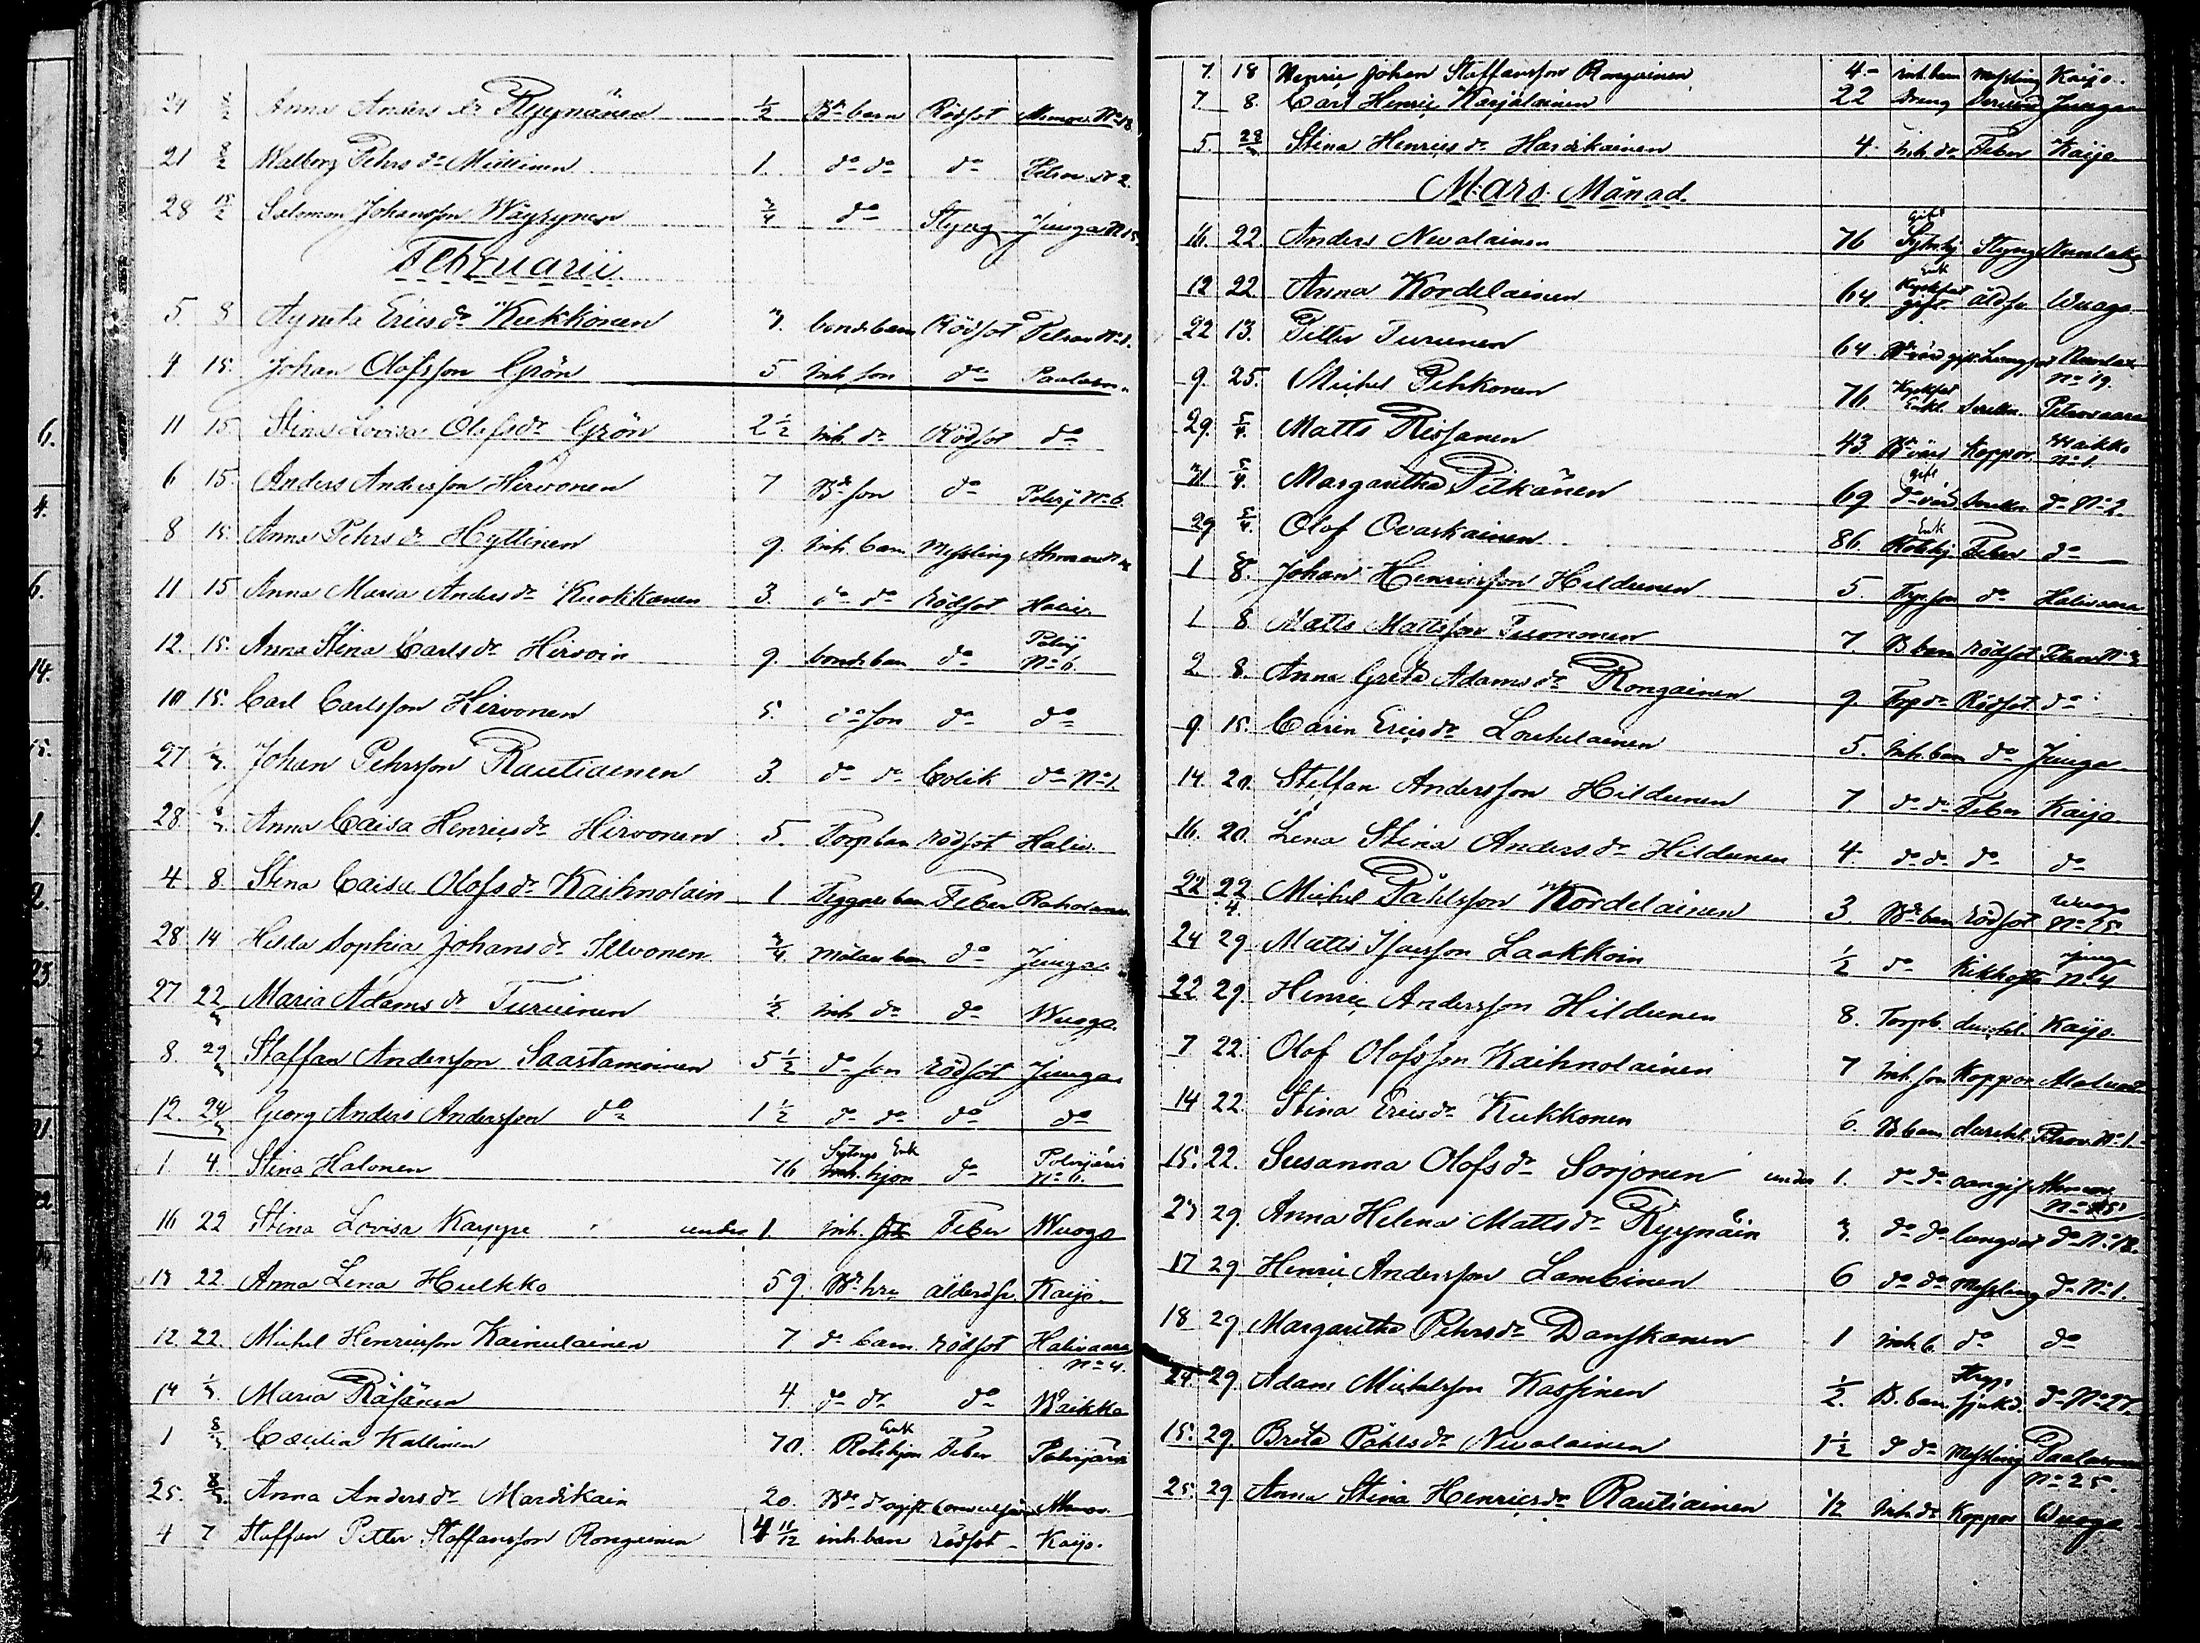 24 8/2 Anna Anders dr Ryynänen 1/2 Bd barn Rödsot
21 8/2 Walborg Pehrs dr Miettinen 1. do do do Petrov. No 2.
28 15/2 Salomon Johansson Wäyrynen 3/4 do Slyng Juuga No 15.
Februarii.
5. 8 Agneta Erics dr Kukkonen 3. bonde barn Rödsot Petrov No 1.
4 15. Johan Olofsson Grön 5 inh son do Paalasm.
11 15. Stina Lovisa Olofs dr Grön 2 1/2 inh dr Rödsot do
6 15. Anders Andersson Hirvonen 7 Bd son do Polvij No 6.
8 15. Anna Pehrs dr Hyttinen 9. inh barn Messling
11 15 Anna Maria Anders dr Kuokkanen 3. do do rödsot Haliv.
12. 15. Anna Stina Carls dr Hirvoin 9. bonde barn do Polvij No 6.
10 15. Carl Carlsson Hirvonen 5. do son do do
27 1/3 Johan Pehrsson Rautiainen 3. do do Colik do No 1.
28. 8/3 Anna Caisa Henrics dr Hirvonen 5. Torp barn rödsot Haliv.
4 8. Stina Caisa Olofs dr Kaihnolain 1 Tiggare barn Feber
28 14 Hilda Sophia Johans dr Ilvonen 3/4. do Juuga
27 22/3 Maria Adams dr Turuinen 1/2 inh dr do Wuogo.
8. 22/3 Staffan Andersson Saastamoinen 5 1/2 do son rödsot Juuga
12. 24/3 Georg Anders Andersson do 1 1/2 do do do do
1. 4. Stina Halonen 76 Enk inh. hjon do Polvijärvi No 6.
16 22 Stina Lovisa Kauppi under 1. inh. Feber Wuogo
13 22. Anna Lena Hulkko 59. ålderds. Kaijo
12. 22. Michel Henricsson Kainulainen 7 do barn rödsot Halivaara No 4.
14 1/3 Maria Räsänen 4 do dr do Waikko
1 8/3. Cæcilia Kallinen 70. Enk Rotehjon Feber Polvijärvi
25. 8/3. Anna Anders dr Mardikain 20. Bd dr ogift
4 7 Staffan Petter Staffansson Rongainen 4 11/12 inh. barn rödsot Kaijo.
7. 18 Henric Johan Staffansson Rongainen 4 inh. barn messling Kaijo.
7 8. Carl Henric Karjalainen 22 Dreng Juuga
5. 28/3 Stina Henrics dr Hardikainen 4. inh. dr Feber Kaijo
Mars Månad.
16. 22 Anders Nevalainen 76 gift Slyng
12 22 Anna Kordelainen 64. Enk ålds. Wuogo
22 13. Petter Turunen 64. No 19.
9. 25. Michel Pehkonen 76. Enkl. Petrovaara
29. 5/4. Matts Rissanen 43. Koppor. Waikko No 1.
31 5/4. Margaretha Pitkänen 69 gift do No 2.
29 5/4. Olof Ovaskainen 86. Enk Rotehj Feber do
1 8. Johan Henricsson Hildunen 5. Torp. son do Halivaara
1 8 Matts Mattsson Tuononen 7 B barn rödsot Petrov No 3
2. 8. Anna Greta Adams dr Rongainen 9. Torp dr Rödsot do
9. 15. Carin Erics dr Loukulainen 5. inh. barn do Juuga
14. 20. Steffan Andersson Hildunen 7. do do Feber Kaijo.
16. 20. Lena Stina Anders dr Hildunen 4. do dr do do
22 22/4. Michel Påhlsson Kordelainen 3. Bd barn rödsot Wuogo No 25.
24 29. Matts Isacsson Laakkoin 1/2 do Kikhosta Juuga No 4
22 29. Henric Andersson Hildunen 8. Torpb. Kaijo.
7 22. Olof Olofsson Kaihnolainen 7 inh. son Koppor
14 22. Stina Erics dr Kukkonen 6. B barn Petrov. No 1.
15. 22. Susanna Olofs dr Sorjonen under 1. do dr No 15
23 29. Anna Helena Matts dr Ryynäin 3. do dr lungsot do No 18.
17 29. Henric Andersson Lamminen 6 do do Messling do No 1.
18 29. Margaretha Pehrs dr Danskanen 1 inh b. do do
24 29. Adam Michelsson Kassinen 1/2. B. barn Stryp sjukd. do No 27.
15. 29. Brita Påhls dr Nevalainen 1 1/2 do dr Messling Paalasmaa No 25.
25. 29 Anna Stina Henrics dr Rautiainen 1/2 inh dr Koppor Wuogo